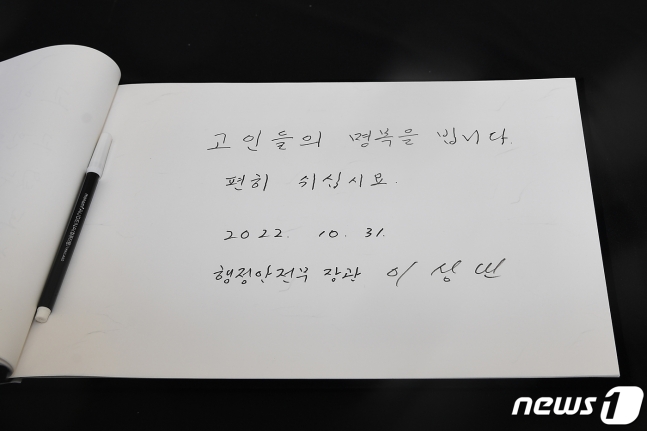 고인들의 명복을 빕니다.
편히 쉬십시요.
2022. 10. 31.
행정안전부 장관 이상민
news1